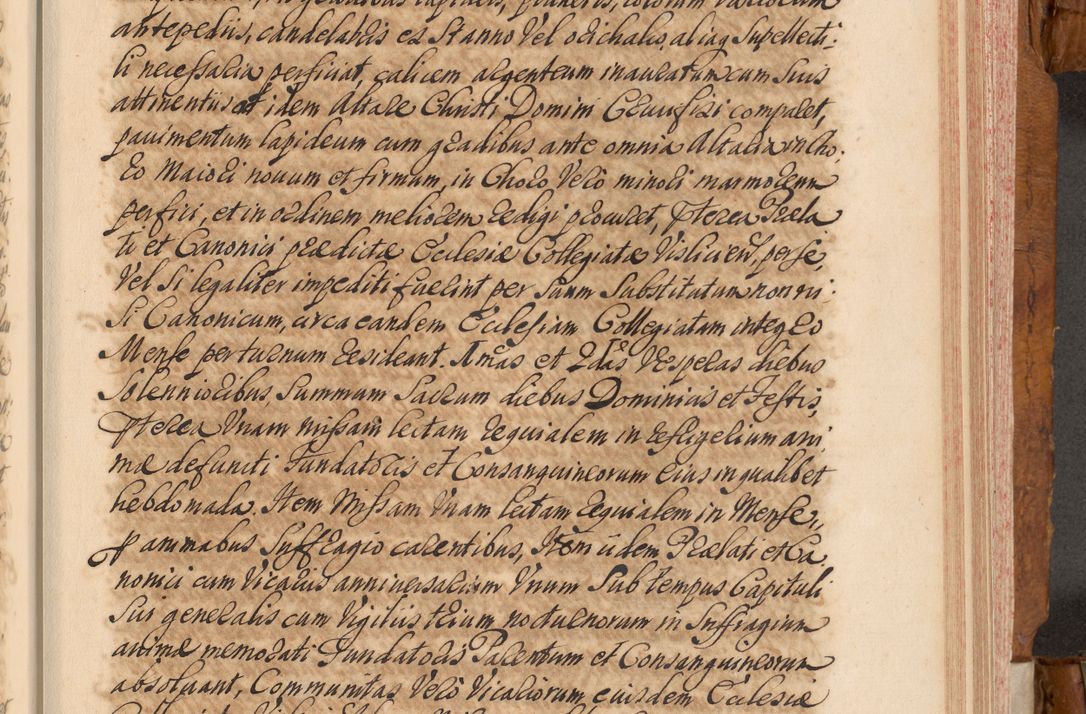 antepediis, candelabris ex Stanno Vel orichalco, aliaq Supellecti-
li necessaria perficiat, calicem argenteum inauratum cum suis
attinentiis ad idem Altare Christi Domini Crucifixi comparet,
pavimentum lapideum cum gradibus ante omnia Altaria in Cho-
ro Maiori novum et firmum, in Choro Vero minori marmoreum
perfici, et in ordinem meliorem redigi procuret, Pterea Præla
ti et Canonici prædictæ Ecclesiæ Collegiatæ Vislicien, per se,
Vel Si legaliter impediti fuerint per Suum Substitutum non ni-
Si Canonicum, circa eandem Ecclesiam Collegiatam integro
Mense per turnum resideant. Imas et 2das Vesperas diebus
Solennioribus, Summum Sacrum diebus Dominicis et Festis,
Pterea Unam missam lectam requialem in refrigerium ani
mæ defuncti Fundatoris et Consanguineorum eius in qualibet
hebdomada. Item Missam Unam lectam requialem in Mense,
p animabus Suffragio carentibus, Item iidem Prælati et Ca
nonici cum Vicariis anniversarium Unum Sub tempus Capituli
Sui generalis cum Vigiliis trium nocturnorum in Suffragium
animæ memorati Fundatoris Parentum et Consanguineorum
absolvant, Communitas Vero Vicariorum eiusdem Ecclesiæ